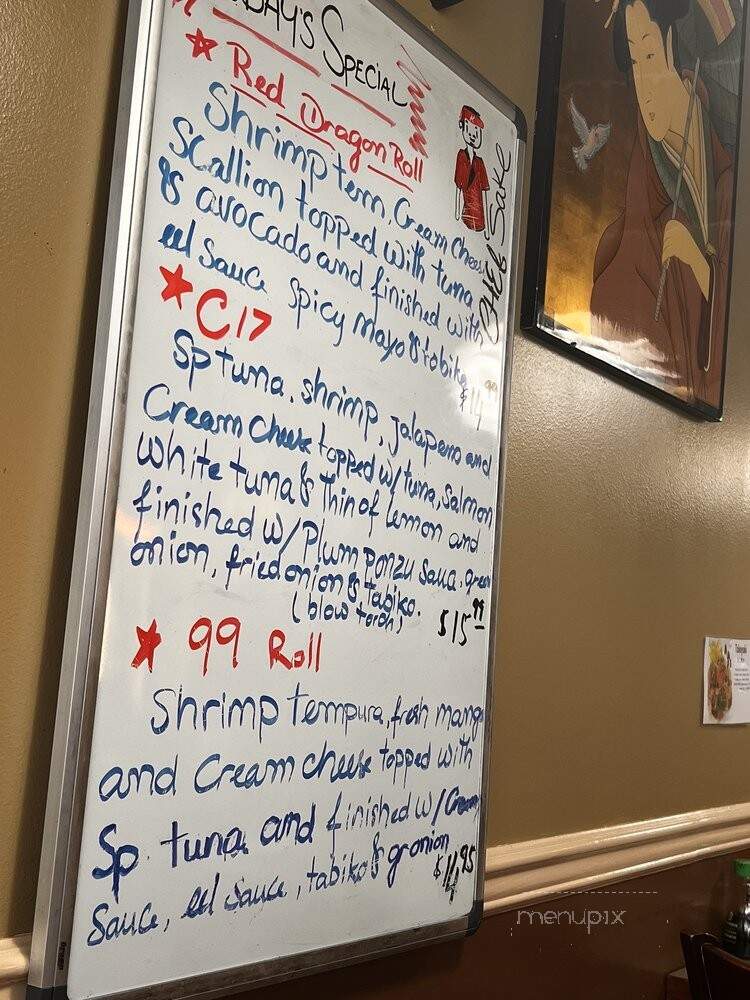 DAY'S SPECIAL
Red Dragon Roll
Shrimp tem, Cream Cheese
Scallion topped with tuna
& avocado and finished with
eel sauce spicy mayo & tobiko
$14
CHEF Sake
C17
Sp tuna, shrimp, jalapeno and
Cream cheese topped w/ tuna, salmon
white tuna & thin of lemon and
finished w/ Plum ponzu sauce. green
onion, fried onion & tabiko.
(blow torch)
$15.95
99 Roll
Shrimp tempura, fresh mango
and cream cheese topped with
Sp. tuna and finished w/ Cream
Sauce, eel sauce, tabiko & gr onion
$11.95
menupix